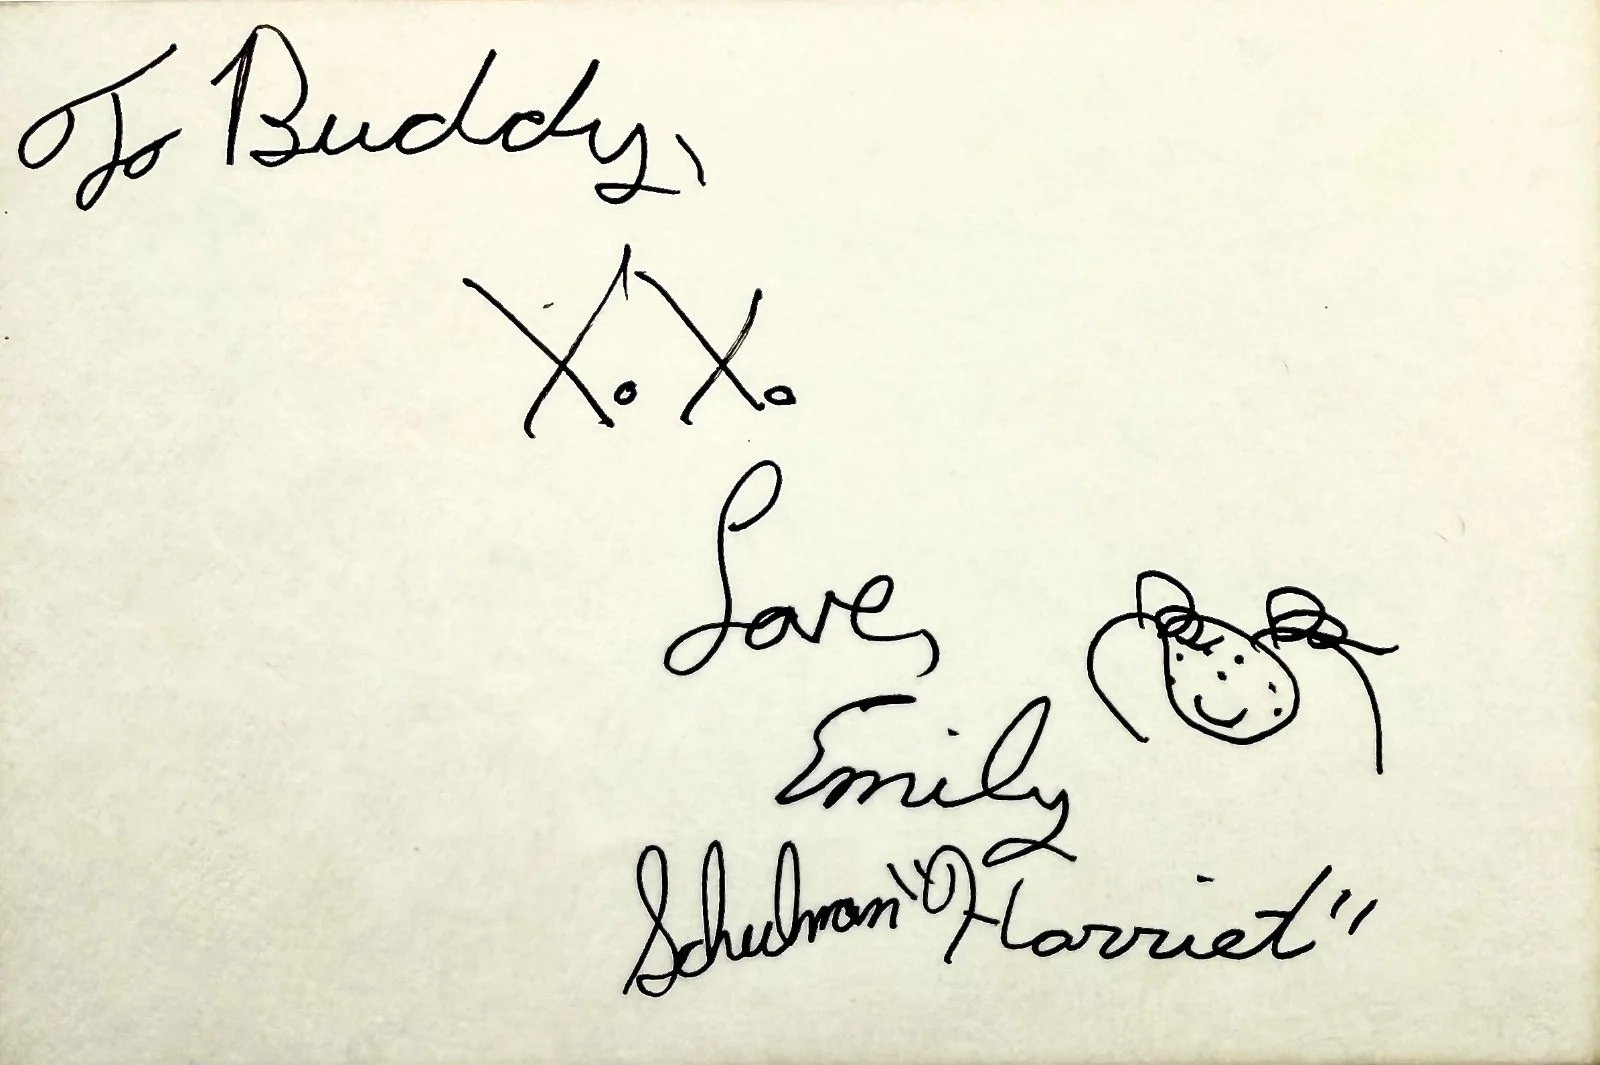 To Buddy,
X.X.
Love,
Emily
Schulman "Harriet"